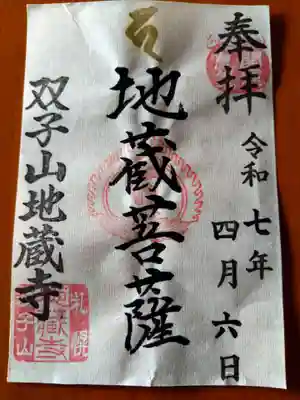 奉拝
令和七年
四月六日
地蔵菩薩
双子山地蔵寺
札幌